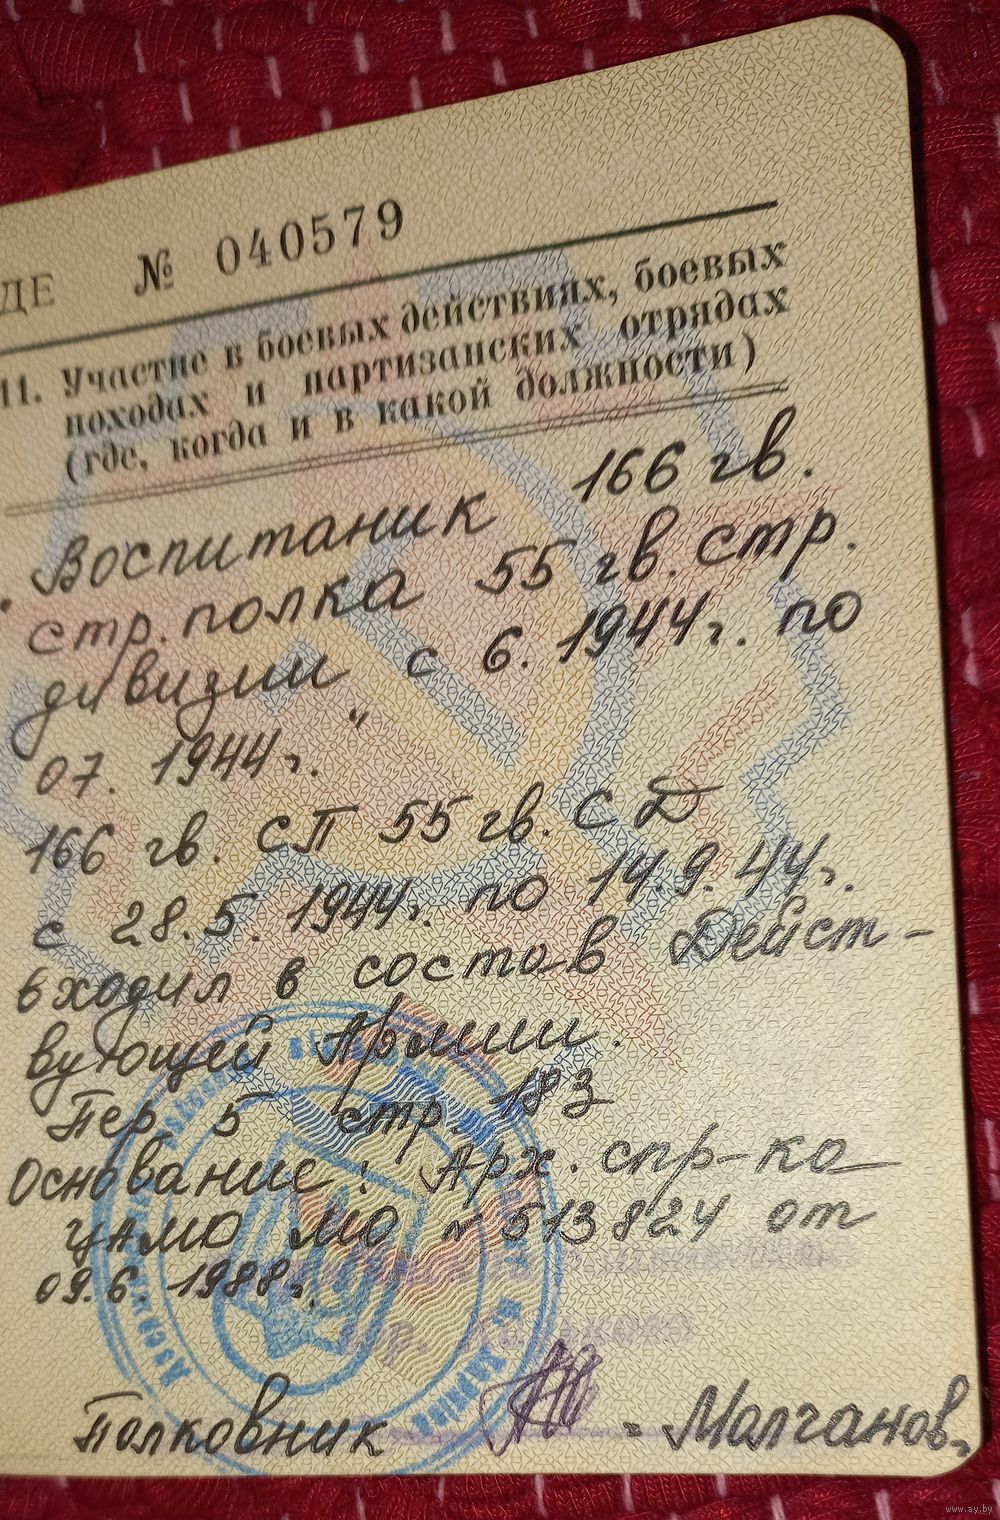 ДЕ № 040579
11. Участие в боевых действиях, боевых
походах и партизанских отрядах
(где, когда и в какой должности)
Воспитаник 166 гв.
стр. полка 55 гв. стр.
дивизии с 6. 1944г. по
07. 1944г. "
166 гв. СП 55 гв. СД
с 28.5. 1944г. по 14.9.44г.
входил в состав Дейст-
вующей Армии.
Пер 5 стр. 183
Основание: Арх. спр-ка
ЦАМО МО № 513824 от
09.6. 1988г.
Полковник = Малганов.
www.ay.by